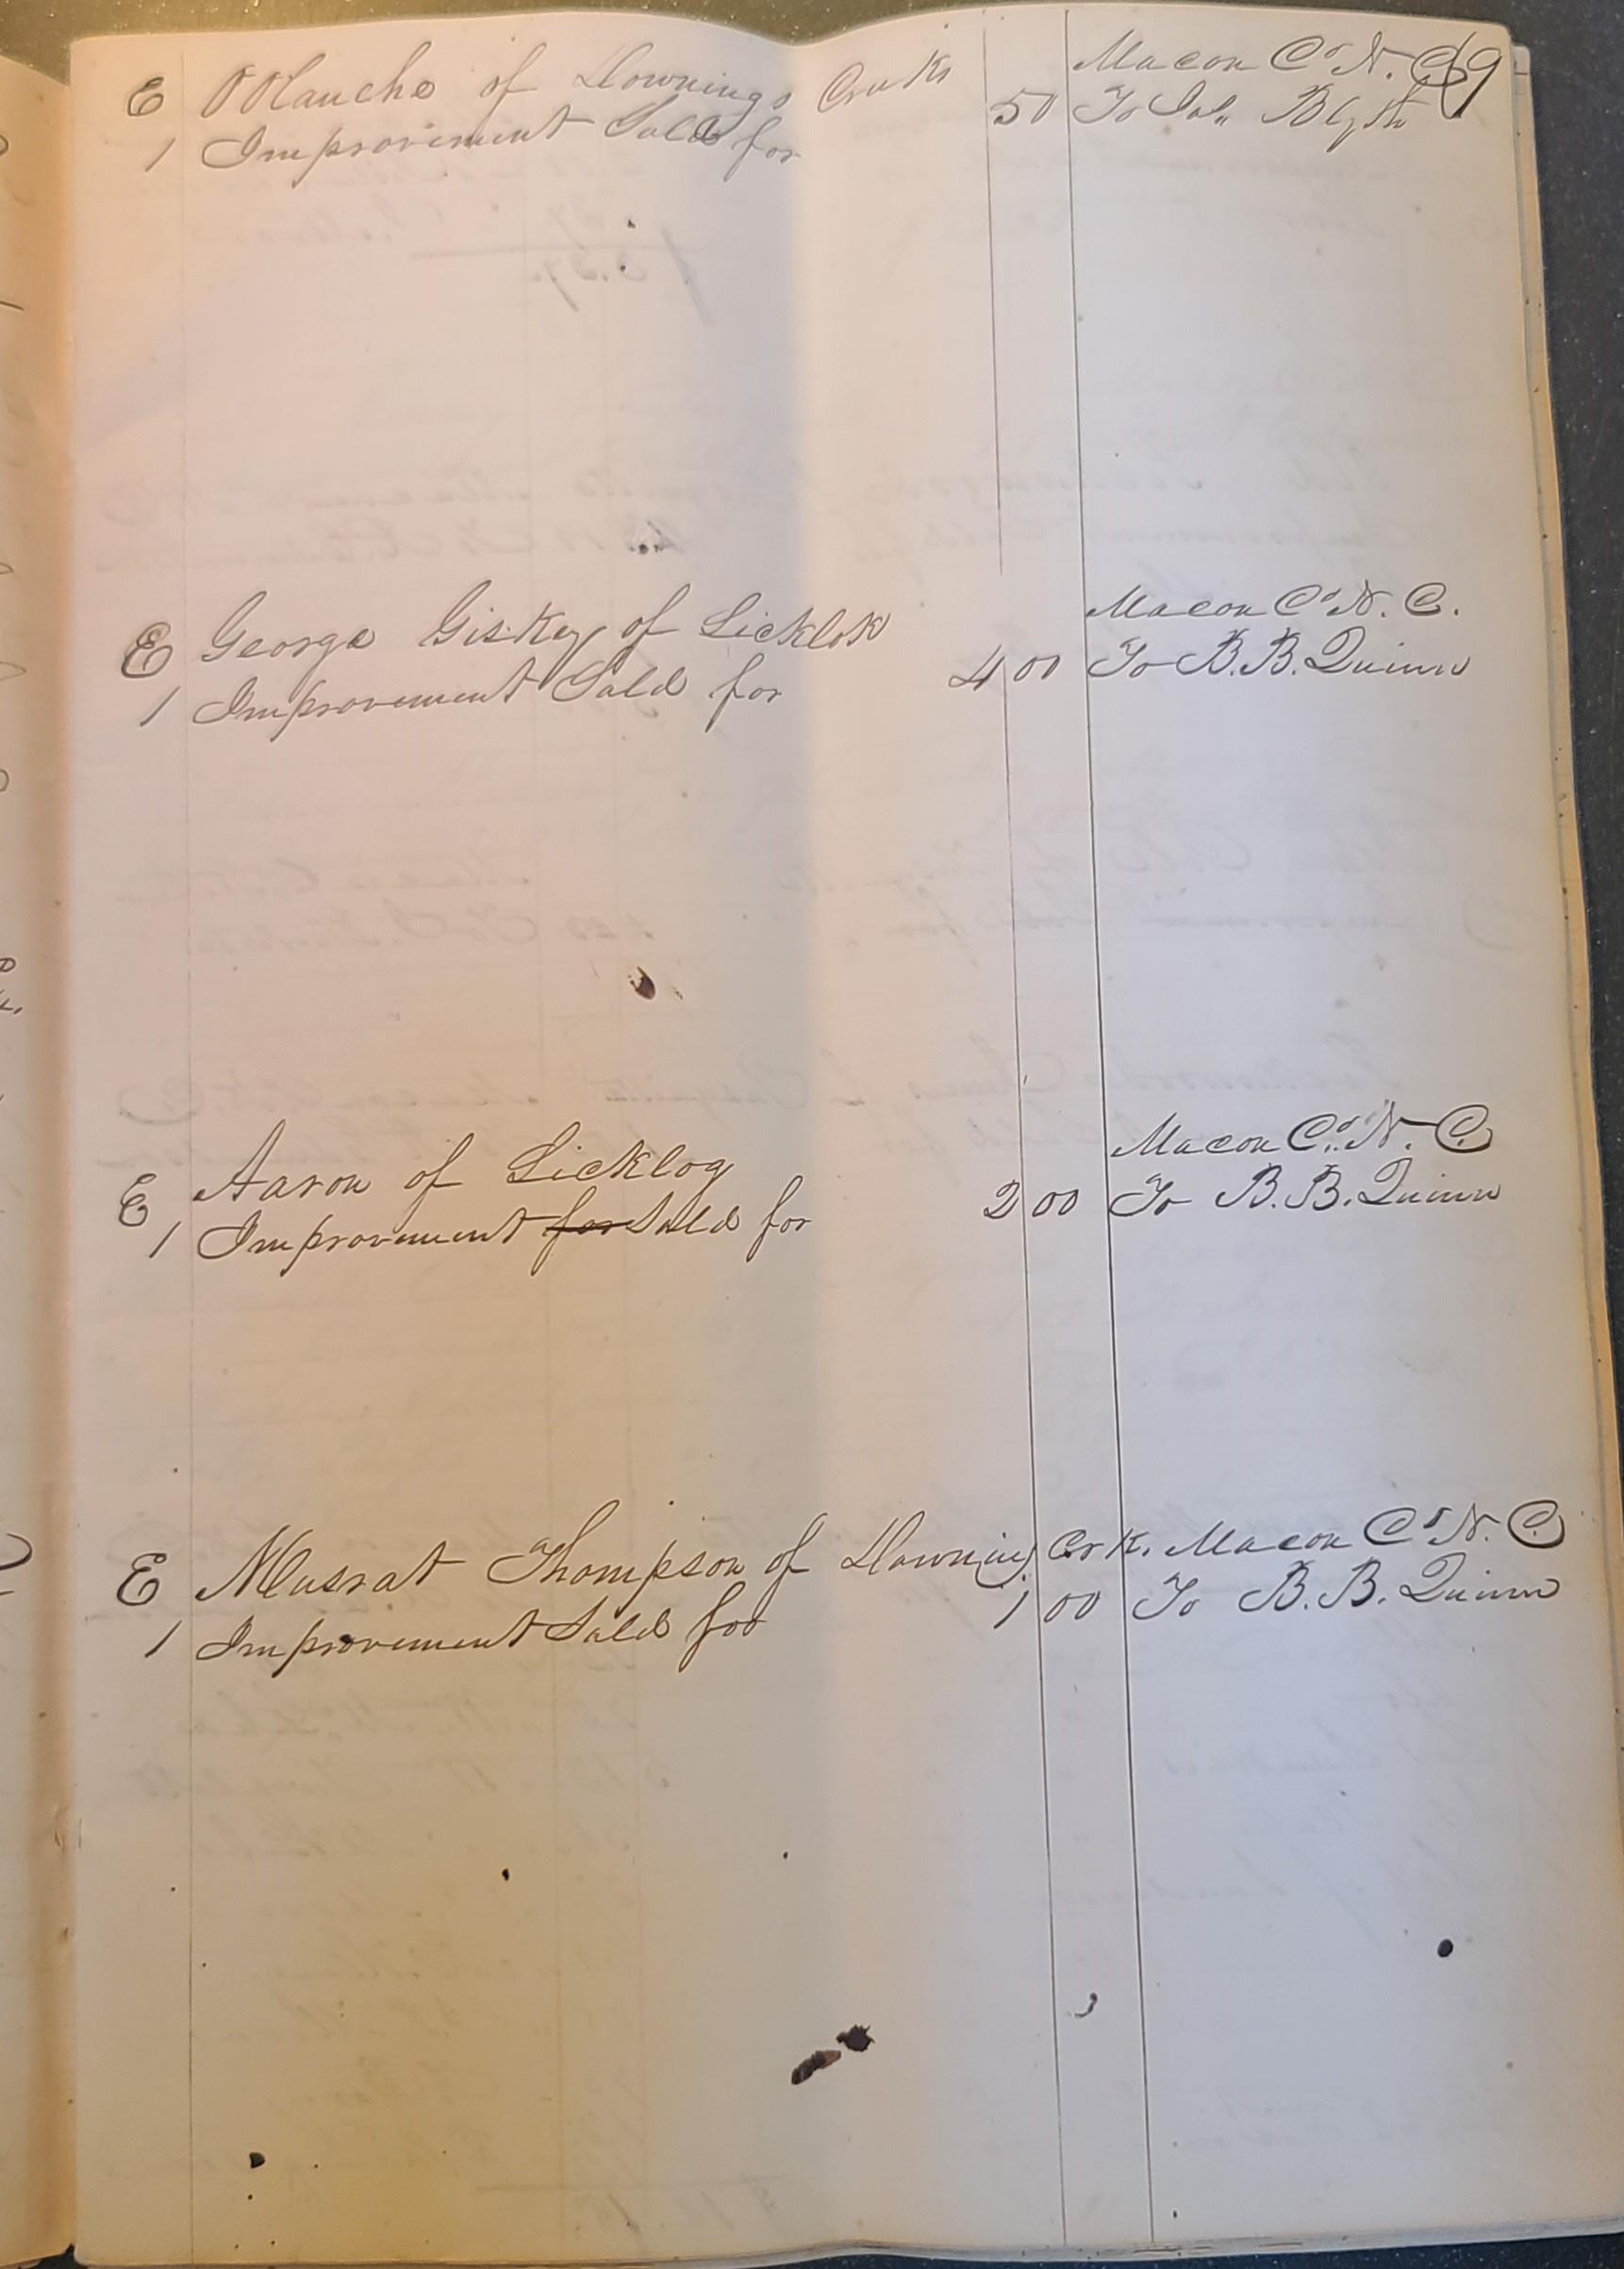 E OOlauche of Downings Creek Macon Co N. C 69
1 Improvement Sold for 50 To Jol. Blyth
E George Giskey of Licklok Macon Co N. C.
1 Improvement Sold for 4 00 To B. B. Quinn
E Aaron of Licklog Macon Co. N. C.
1 Improvement for Sold for 2 00 To B. B. Quinn
E Musrat Thompson of Downing Crk. Macon Co N. C.
1 Improvement Sold for 1 00 To B. B. Quinn